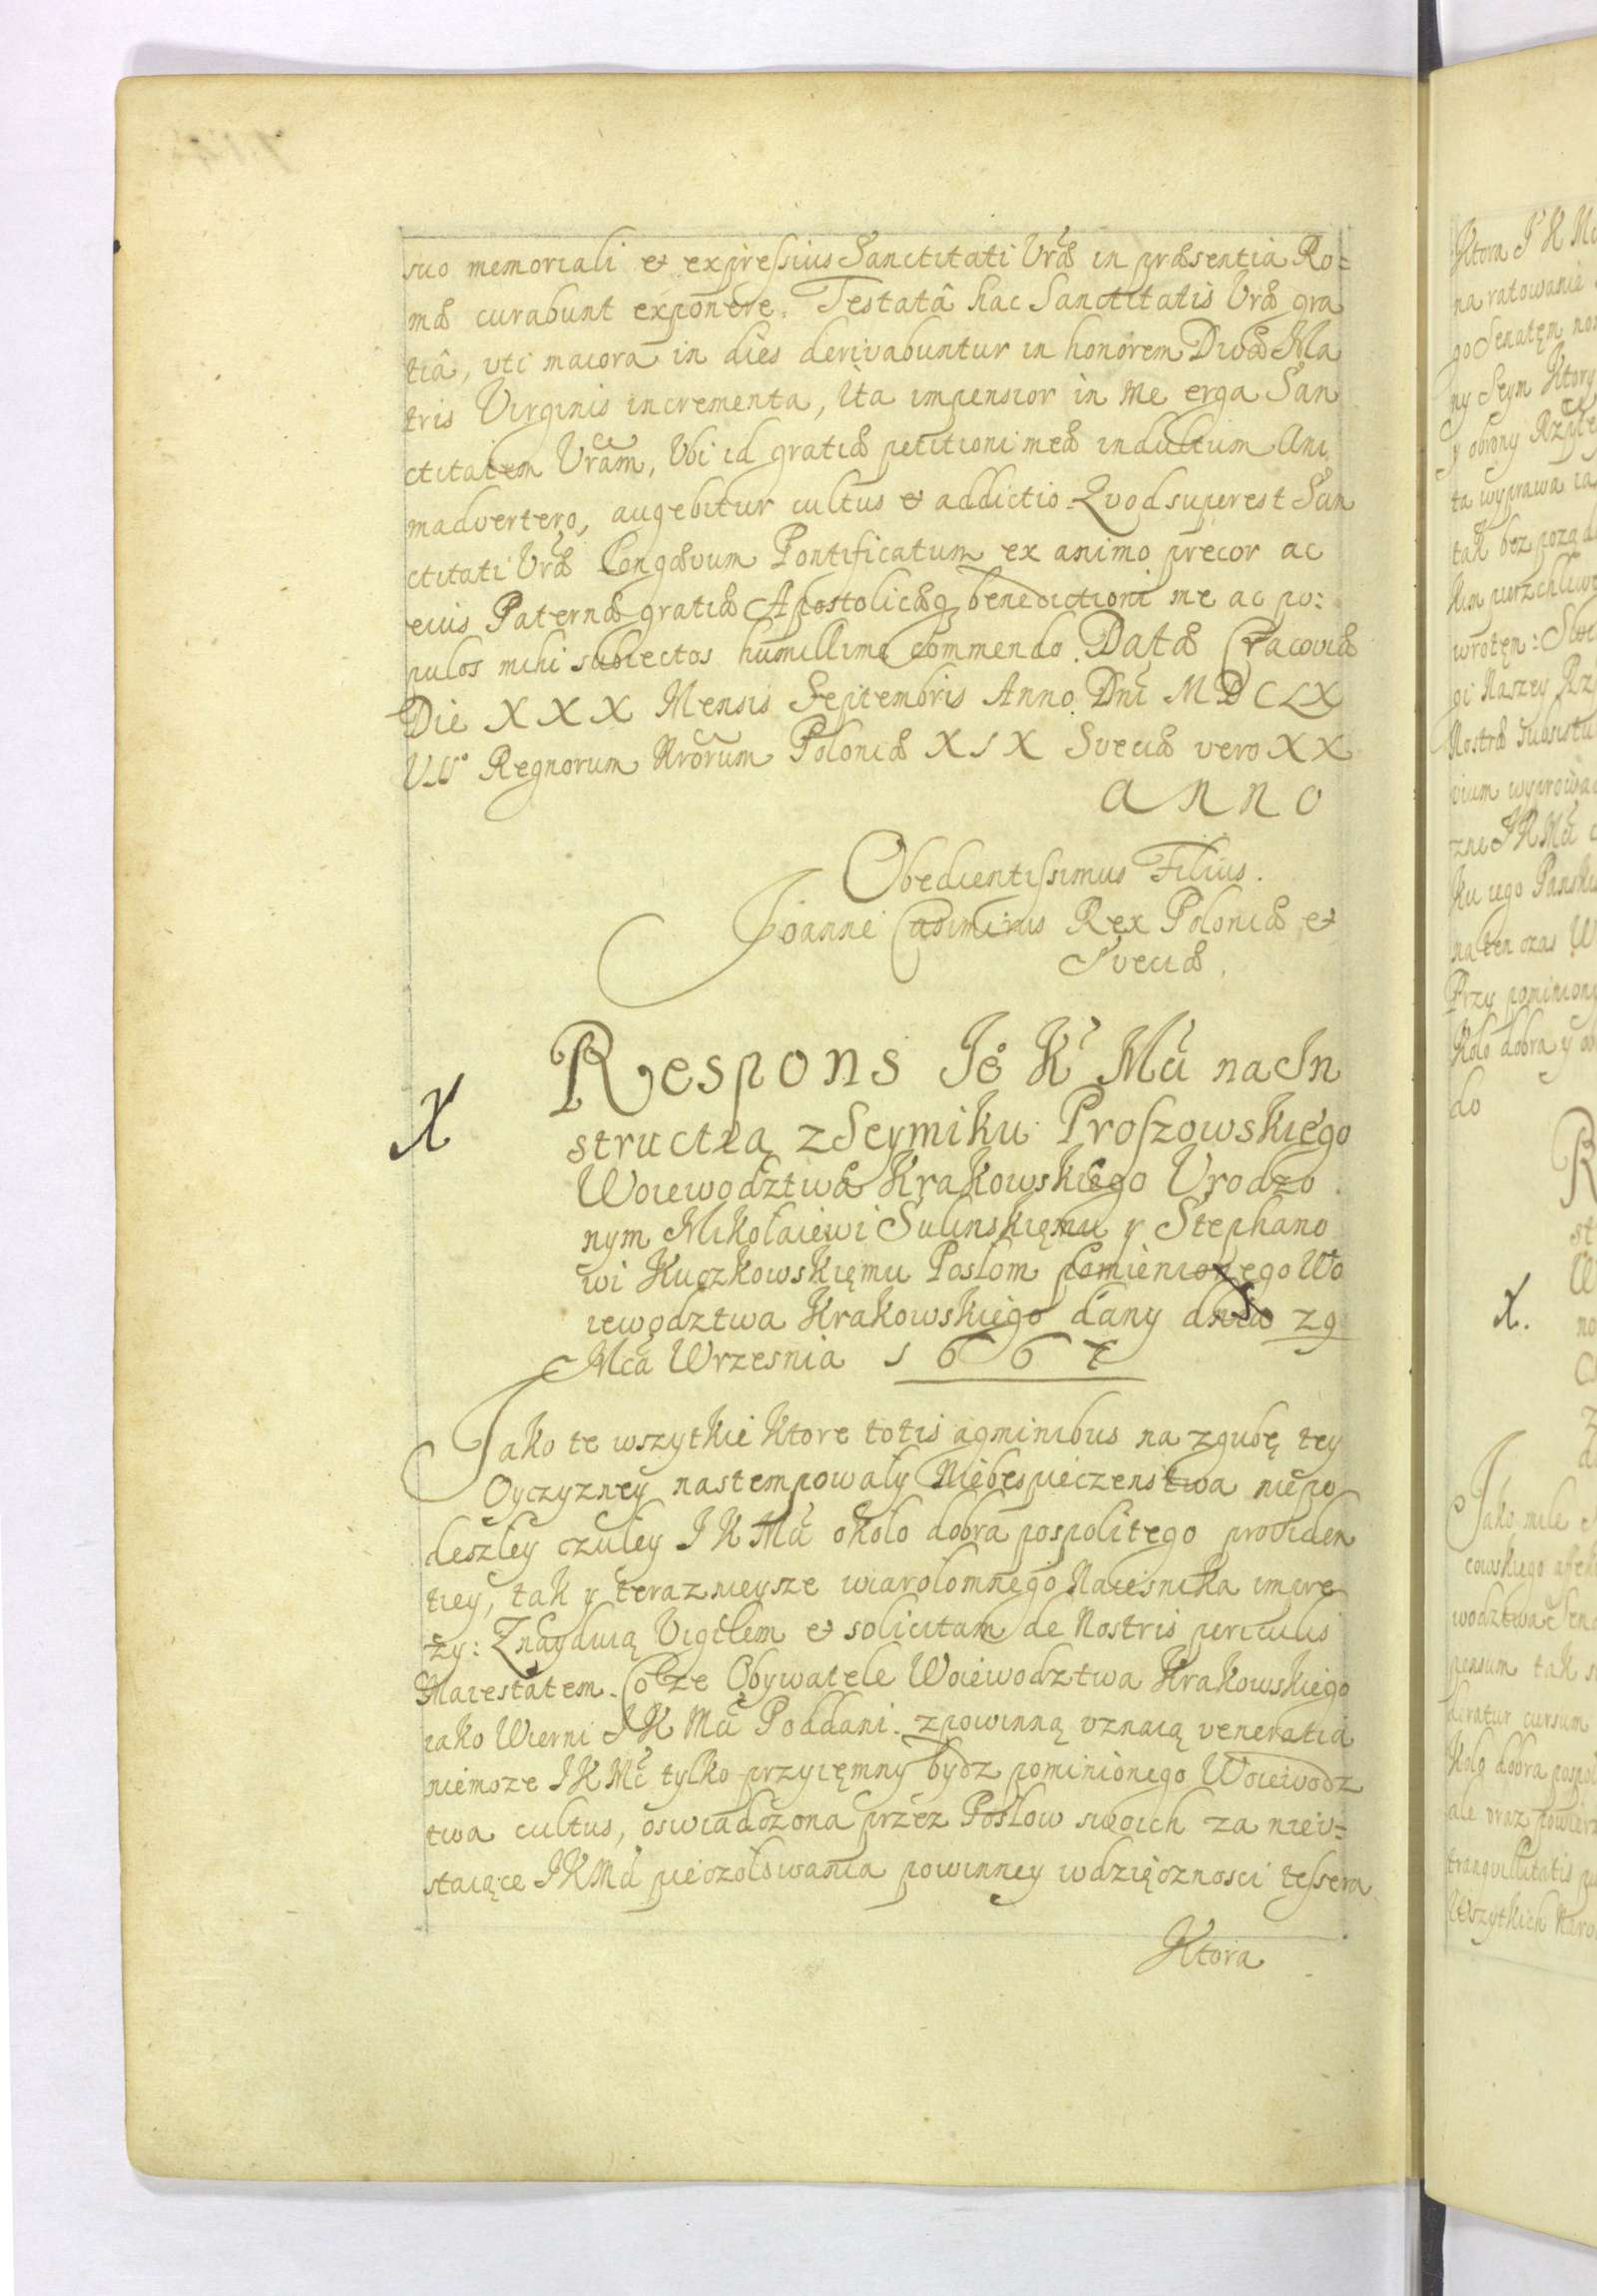 suo memoriali et expressius Sanctitati Vræ in præsentia Ro=
mæ curabunt exponere. Testatâ hac Sanctitatis Vræ gra
tiâ, uti maiora in dies derivabuntur in honorem Divæ Ma
tris Virginis incrementa, ita impensior in me erga San
ctitatem Vram, Ubi id gratiæ petitioni meæ indultum Ani
madvertero, augebitur cultus et addictio. Quod superest San
ctitati Vræ Longævum Pontificatum ex animo precor ac
eius Paternæ gratiæ Apostolicæq benedictioni me ac po:
pulos mihi subiectos humillime commendo. Datæ Cracoviæ
Die XXX Mensis Septembris Anno Dni MDCLX
VII° Regnorum Nrorum Poloniæ XIX Sveciæ vero XX
anno
Obedientissimus Filius.
Joannes Casimirus Rex Poloniæ et
Sveciæ.
X
Respons Je° K Mci na In
structią z Seymiku Proszowskiego
Woiewodztwa Krakowskiego Urodzo
nym Mikołaiewi Sulinskięmu y Stephano
wi Kuczkowskięmu Posłom pomienionego Wo
iewodztwa Krakowskiego dany dnia 29
Mca Wrzesnia 1667
Jako te wszytkie ktore totis agminibus na zgubę tey
Oyczyzney nastempowały Niebespieczenstwa niepo
deszłey czułey J K Mci około dobra pospolitego providen
tiey, tak y teraznieysze wiarołomnego Naiesnika impre
zy: Znayduią Vigilem et solicitam de Nostris periculis
Maiestatem. Co ze Obywatele Woiewodztwa Krakowskiego
iako Wierni J K Mci Poddani z powinną uznaią veneratią
niemoze J K Mci tylko przyięmny bydz pominionego Woiewodz
twa cultus, oswiadczona przez Posłow swoich za nieu=
staiące J K Mci pieczołowania powinney wdzięcznosci tessera
Ktora
Ktora J K Mc
na ratowanie
go Senatęm
ny Seym Ktory
y obrony Rzpte
ta wyprawa ia
tak bez pozad
wrotęm:
gi Naszey Rz
vium wyprowa
zne J K Mci
ku iego Panski
na ten czas W
Przy pominiony
koło dobra y
do
R
st
W
X.
no
Jako miłe
cowskiego
wodztwa Sena
pensum tak
ratur cursum
koło dobra pospol
ale oraz powierz
tranquillitatis pu
Wszytkich Naro